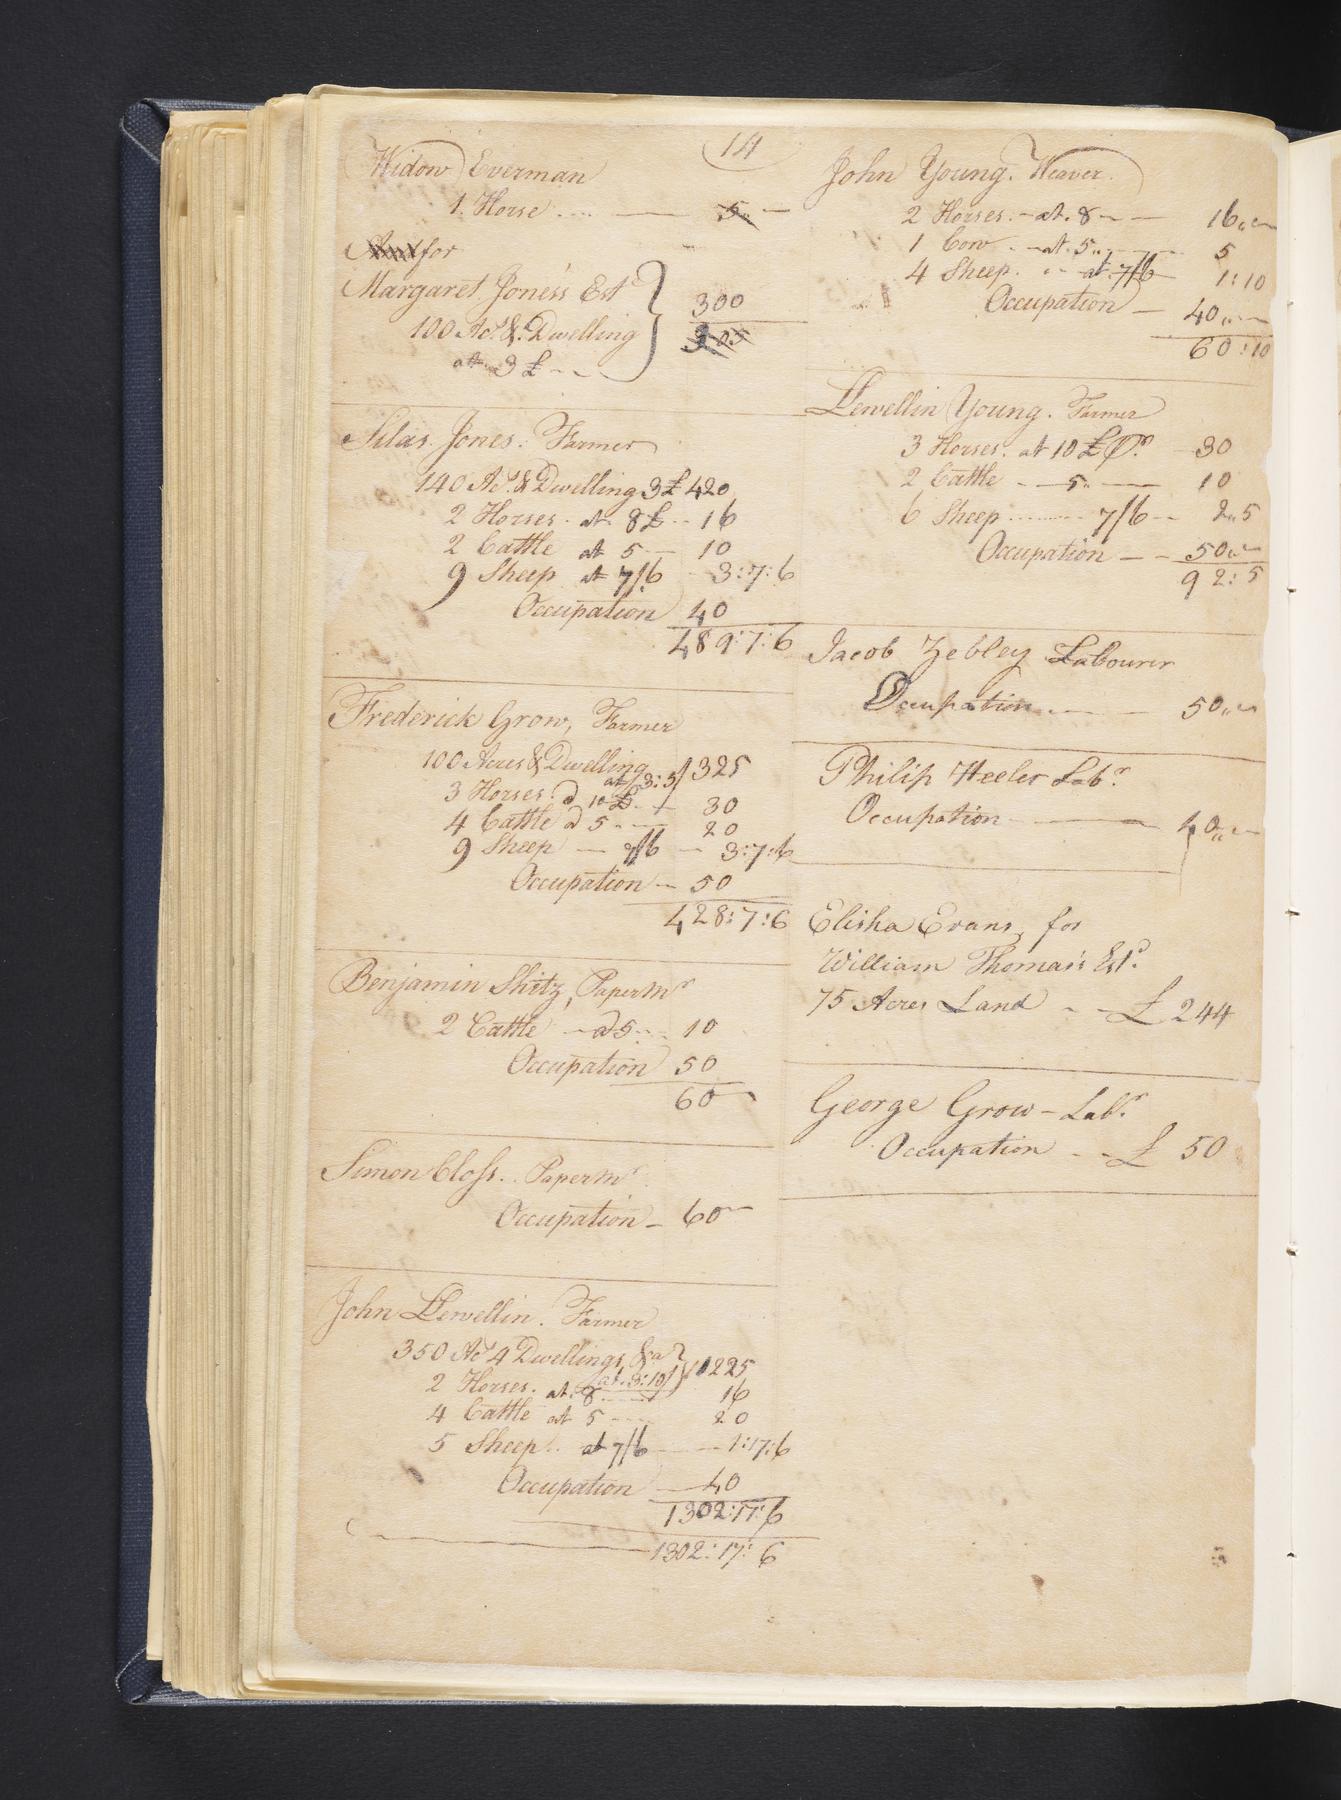 14
Widow Everman
1 Horse .... — 5 —
for
Margaret Jones's Est
100 Acs & Dwelling } 300
at 3 £ - - 305
Silas Jones. Farmer
140 Acs & Dwelling 3£ 420
2 Horses at 8£ - - 16
2 Cattle at 5 — 10
9 Sheep at 7/6 - 3:7:6
Occupation 40
489:7:6
Frederick Grow, Farmer
100 Acres & Dwelling
at 3:5/ } 325
3 Horses @ 10 £ - - 30
4 Cattle @ 5 - — 20
9 Sheep — 7/6 — 3:7:6
Occupation — 50
428:7:6
Benjamin Shitz, Paper Mr
2 Cattle — @ 5 - - 10
Occupation 50
60
Simon Closs. Paper Mr
Occupation - 60
John Llewellin. Farmer
350 Acs 4 Dwellings, &a
at 3:10/ } 1225
2 Horses. at 8 — 16
4 Cattle at 5 - - 20
5 Sheep.. at 7/6 — 1:17:6
Occupation — 40
1302:17:6
1302:17:6
John Young. Weaver.
2 Horses. - at 8 - — 16,,—
1 Cow - - at 5,, — 5
4 Sheep. - - at 7/6 — 1:10
Occupation — 40,,—
60:10
Llewellin Young. Farmer
3 Horses. at 10 £ Pr. — 30
2 Cattle - — 5 - — 10
6 Sheep ........ 7/6 - - 2,,5
Occupation — - 50,,—
92:5
Jacob Zebley Labourer
Occupation - — 50,,—
Philip Heeler Labr.
Occupation - — 40,,—
Elisha Evans, for
William Thomas's Estd.
75 Acres Land - - £ 244
George Grow - Labr.
Occupation - - £ 50